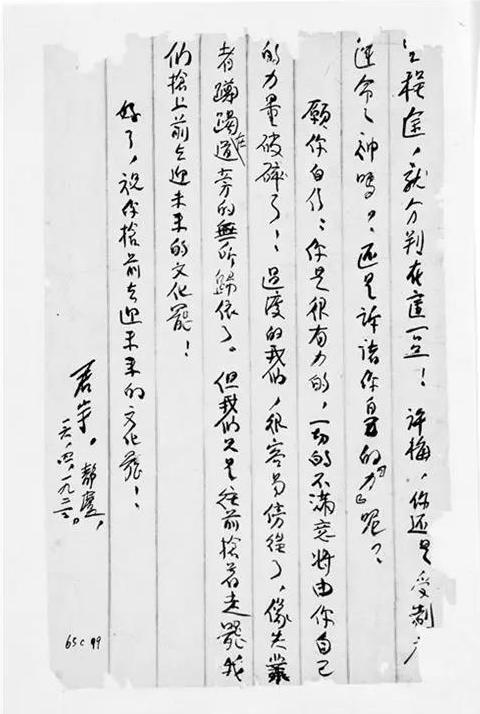 程途，就分判在這一点！評梅，你還是受制
運命之神嗎？還是訴諸你自己的『力』呢？
願你自信：你是很有力的，一切的不滿意將由你自己
的力量破碎了！過渡的我們，很容易傍徨了，像失業
者躑躅在道旁的無所歸依了。但我們只是往前搶着走罷我
們搶上前去迎未来的文化罷！
好了，祝你搶前去迎未来的文化罷！
君宇。靜廬，
一六，四，一九二三。
65c99